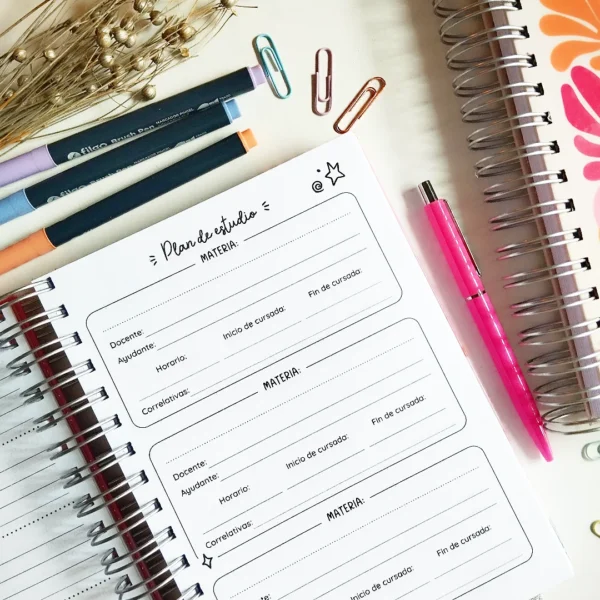 filgo Brush Pen MARCADOR PINCEL
filgo Brush Pen
Plan de estudio
MATERIA:
Docente:
Ayudante:
Horario:
Inicio de cursada:
Fin de cursada:
Correlativas:
MATERIA:
Docente:
Ayudante:
Horario:
Inicio de cursada:
Fin de cursada:
Correlativas:
MATERIA:
Docente:
Inicio de cursada:
Fin de cursada: